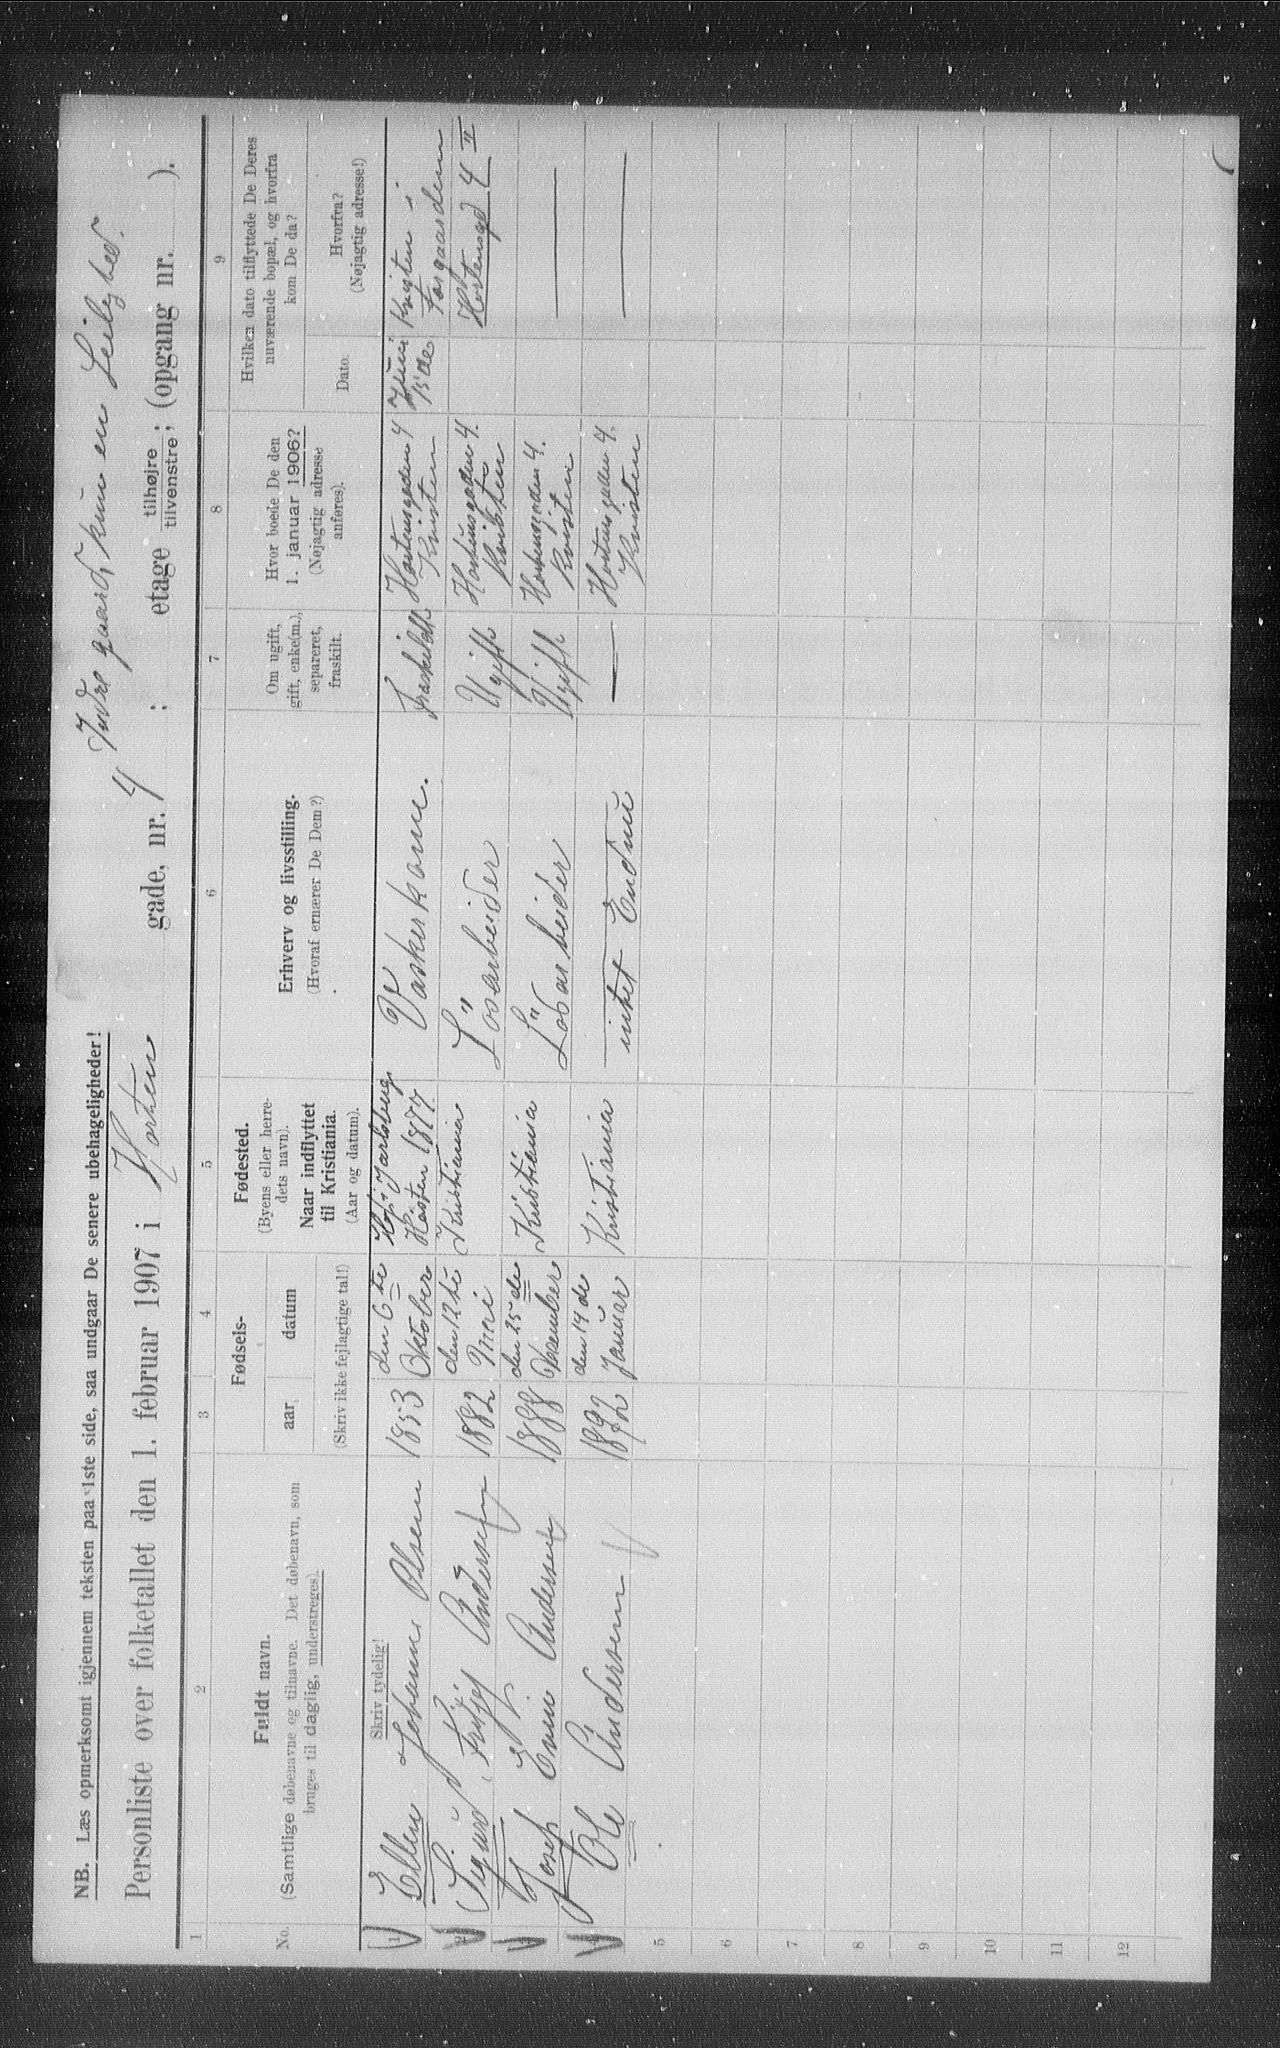 NB. Læs opmerksomt igjennem teksten paa 1ste side, saa undgaar De senere ubehageligheder!
Indre gaard, kun en Leilighed.
Personliste over folketallet den 1. februar 1907 i Horten gade, nr. 4 ; etage tilhøjre tilvenstre ; (opgang nr. ).
1 2 3 4 5 6 7 8 9
No.
Fuldt navn.
(Samtlige døbenavne og tilnavne. Det døbenavn, som
bruges til daglig, understreges).
Fødsels-
aar datum
(Skriv ikke fejlagtige tal!)
Fødested.
(Byens eller herre-
dets navn).
Naar indflyttet
til Kristiania.
(Aar og datum).
Erhverv og livsstilling.
(Hvoraf ernærer De Dem?)
Om ugift,
gift, enke(m.),
separeret,
fraskilt.
Hvor boede De den
1. januar 1906?
(Nøjagtig adresse
anføres).
Hvilken dato tilflyttede De Deres
nuværende bopæl, og hvorfra
kom De da?
Dato.
Hvorfra?
(Nøjagtig adresse!)
Skriv tydelig!
1 Ellen Johanne Olsen 1853 den 6te Oktober Jarlsberg Hösten 1877 Vaskerkone. fraskildt Hortensgaden 4 Kvisten Juni 15de Kvisten i forgaarden
2 Sigurd Andersen 1882 den 12te Mai Kristiania Lösarbeider Ugift Hortensgaden 4. Kvisten Hortensgd 4 II
3 Josef Andersen 1888 den 25de Kristiania Lösarbeider Ugift Hortensgaden 4. Kvisten —
4 Ole Andersen 1892 den 14de Januar Kristiania intet Endnu — Hortensgaden 4. Kvisten —
5
6
7
8
9
10
11
12